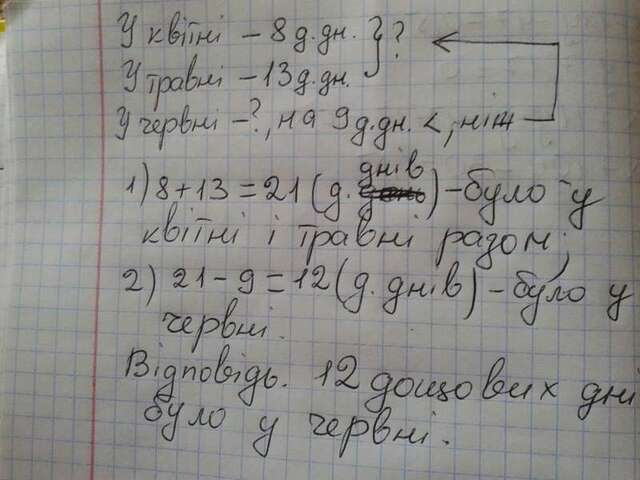 У квітні – 8 д.дн. } ?
У травні – 13 д.дн.
У червні – ?, на 9 д.дн. <, ніж
днів
1) 8 + 13 = 21 (д. день) – було у
квітні і травні разом;
2) 21 – 9 = 12 (д. днів) – було у
червні.
Відповідь. 12 дощових дні
було у червні.